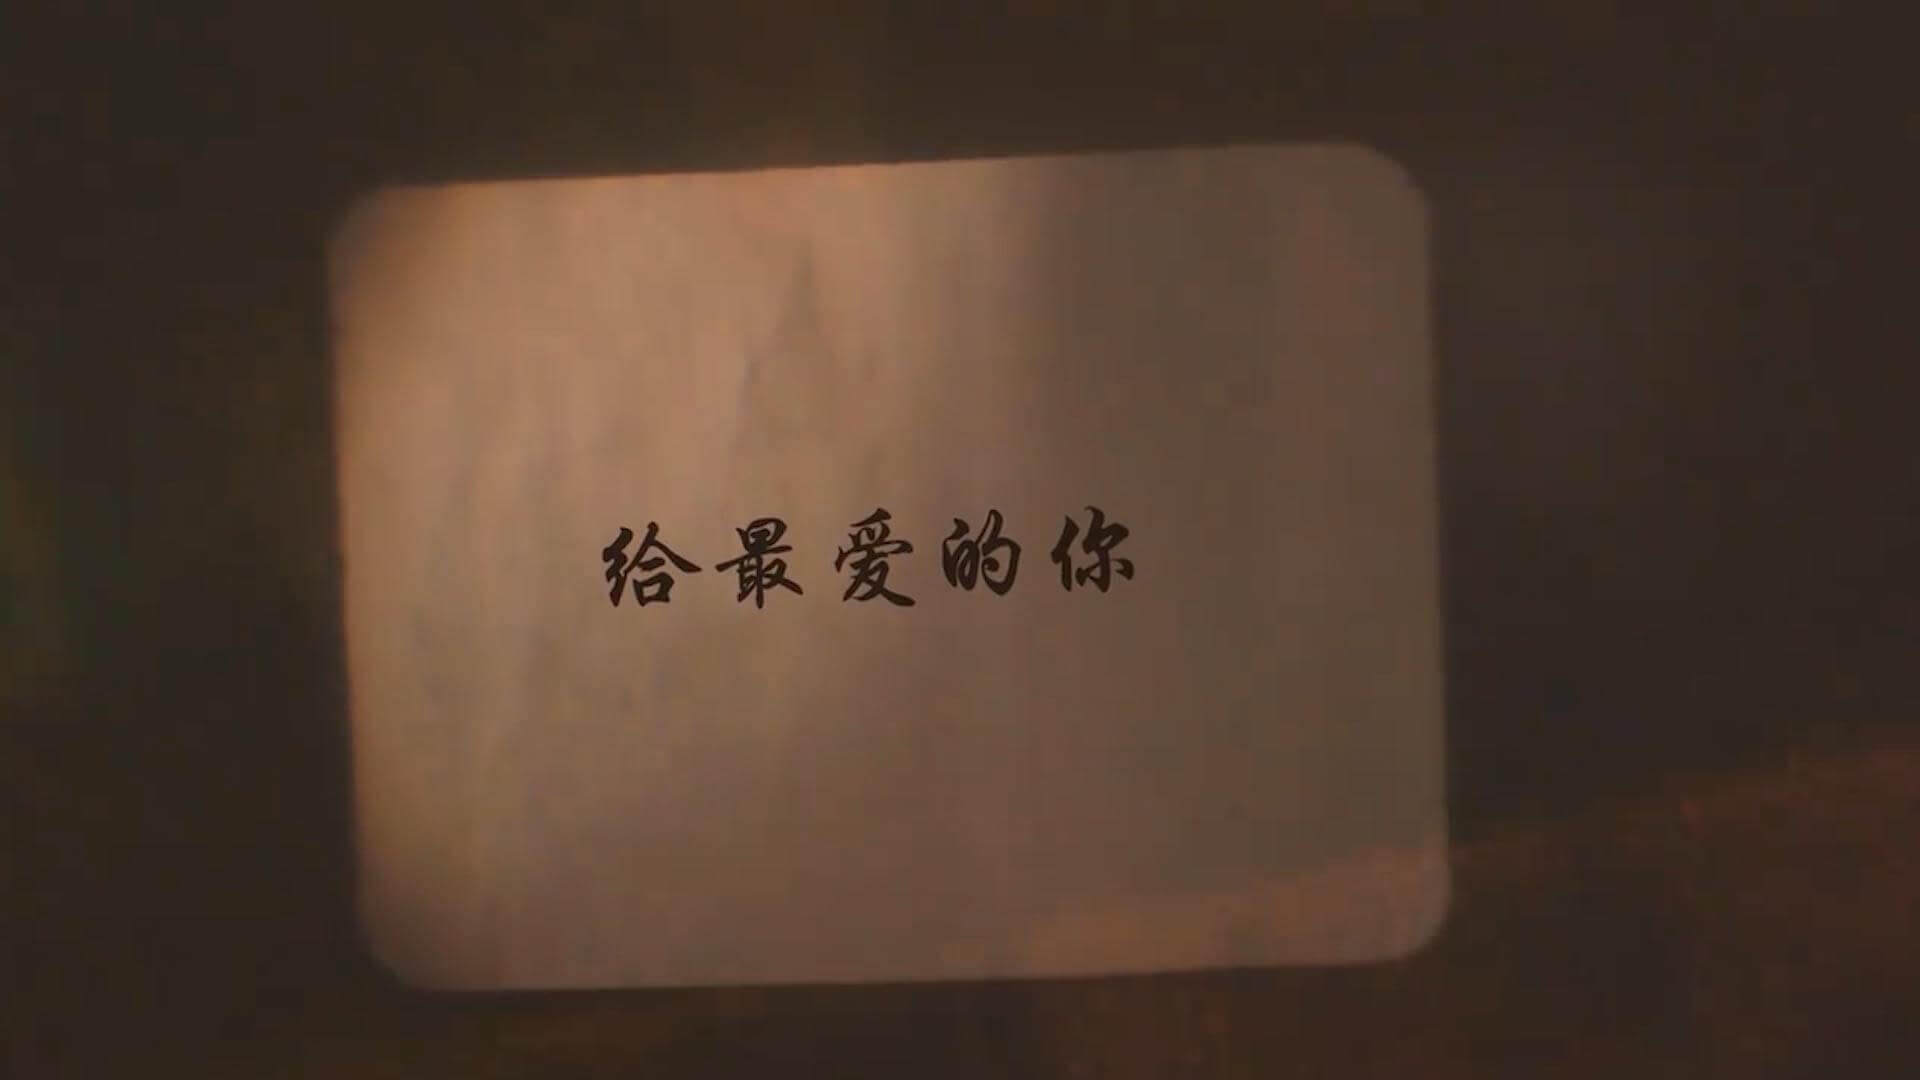 给最爱的你